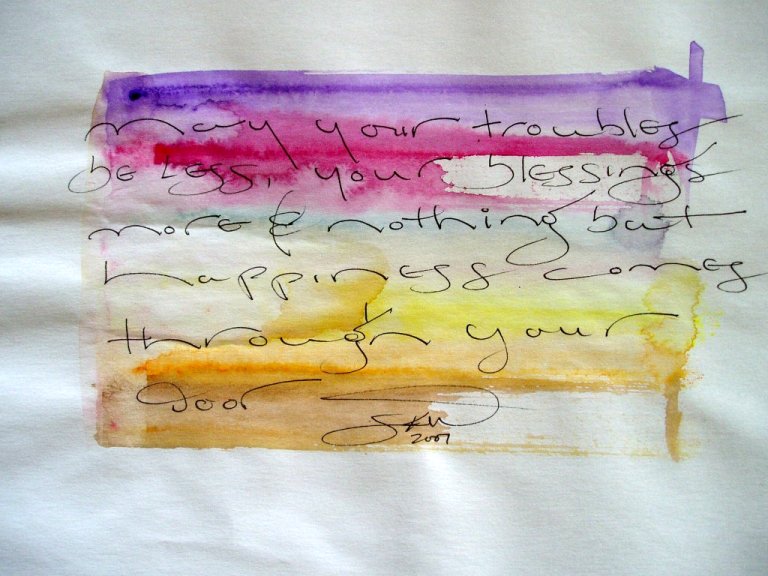 may your troubles
be less, your blessings
more & nothing but
happiness comes
through your
door
2007